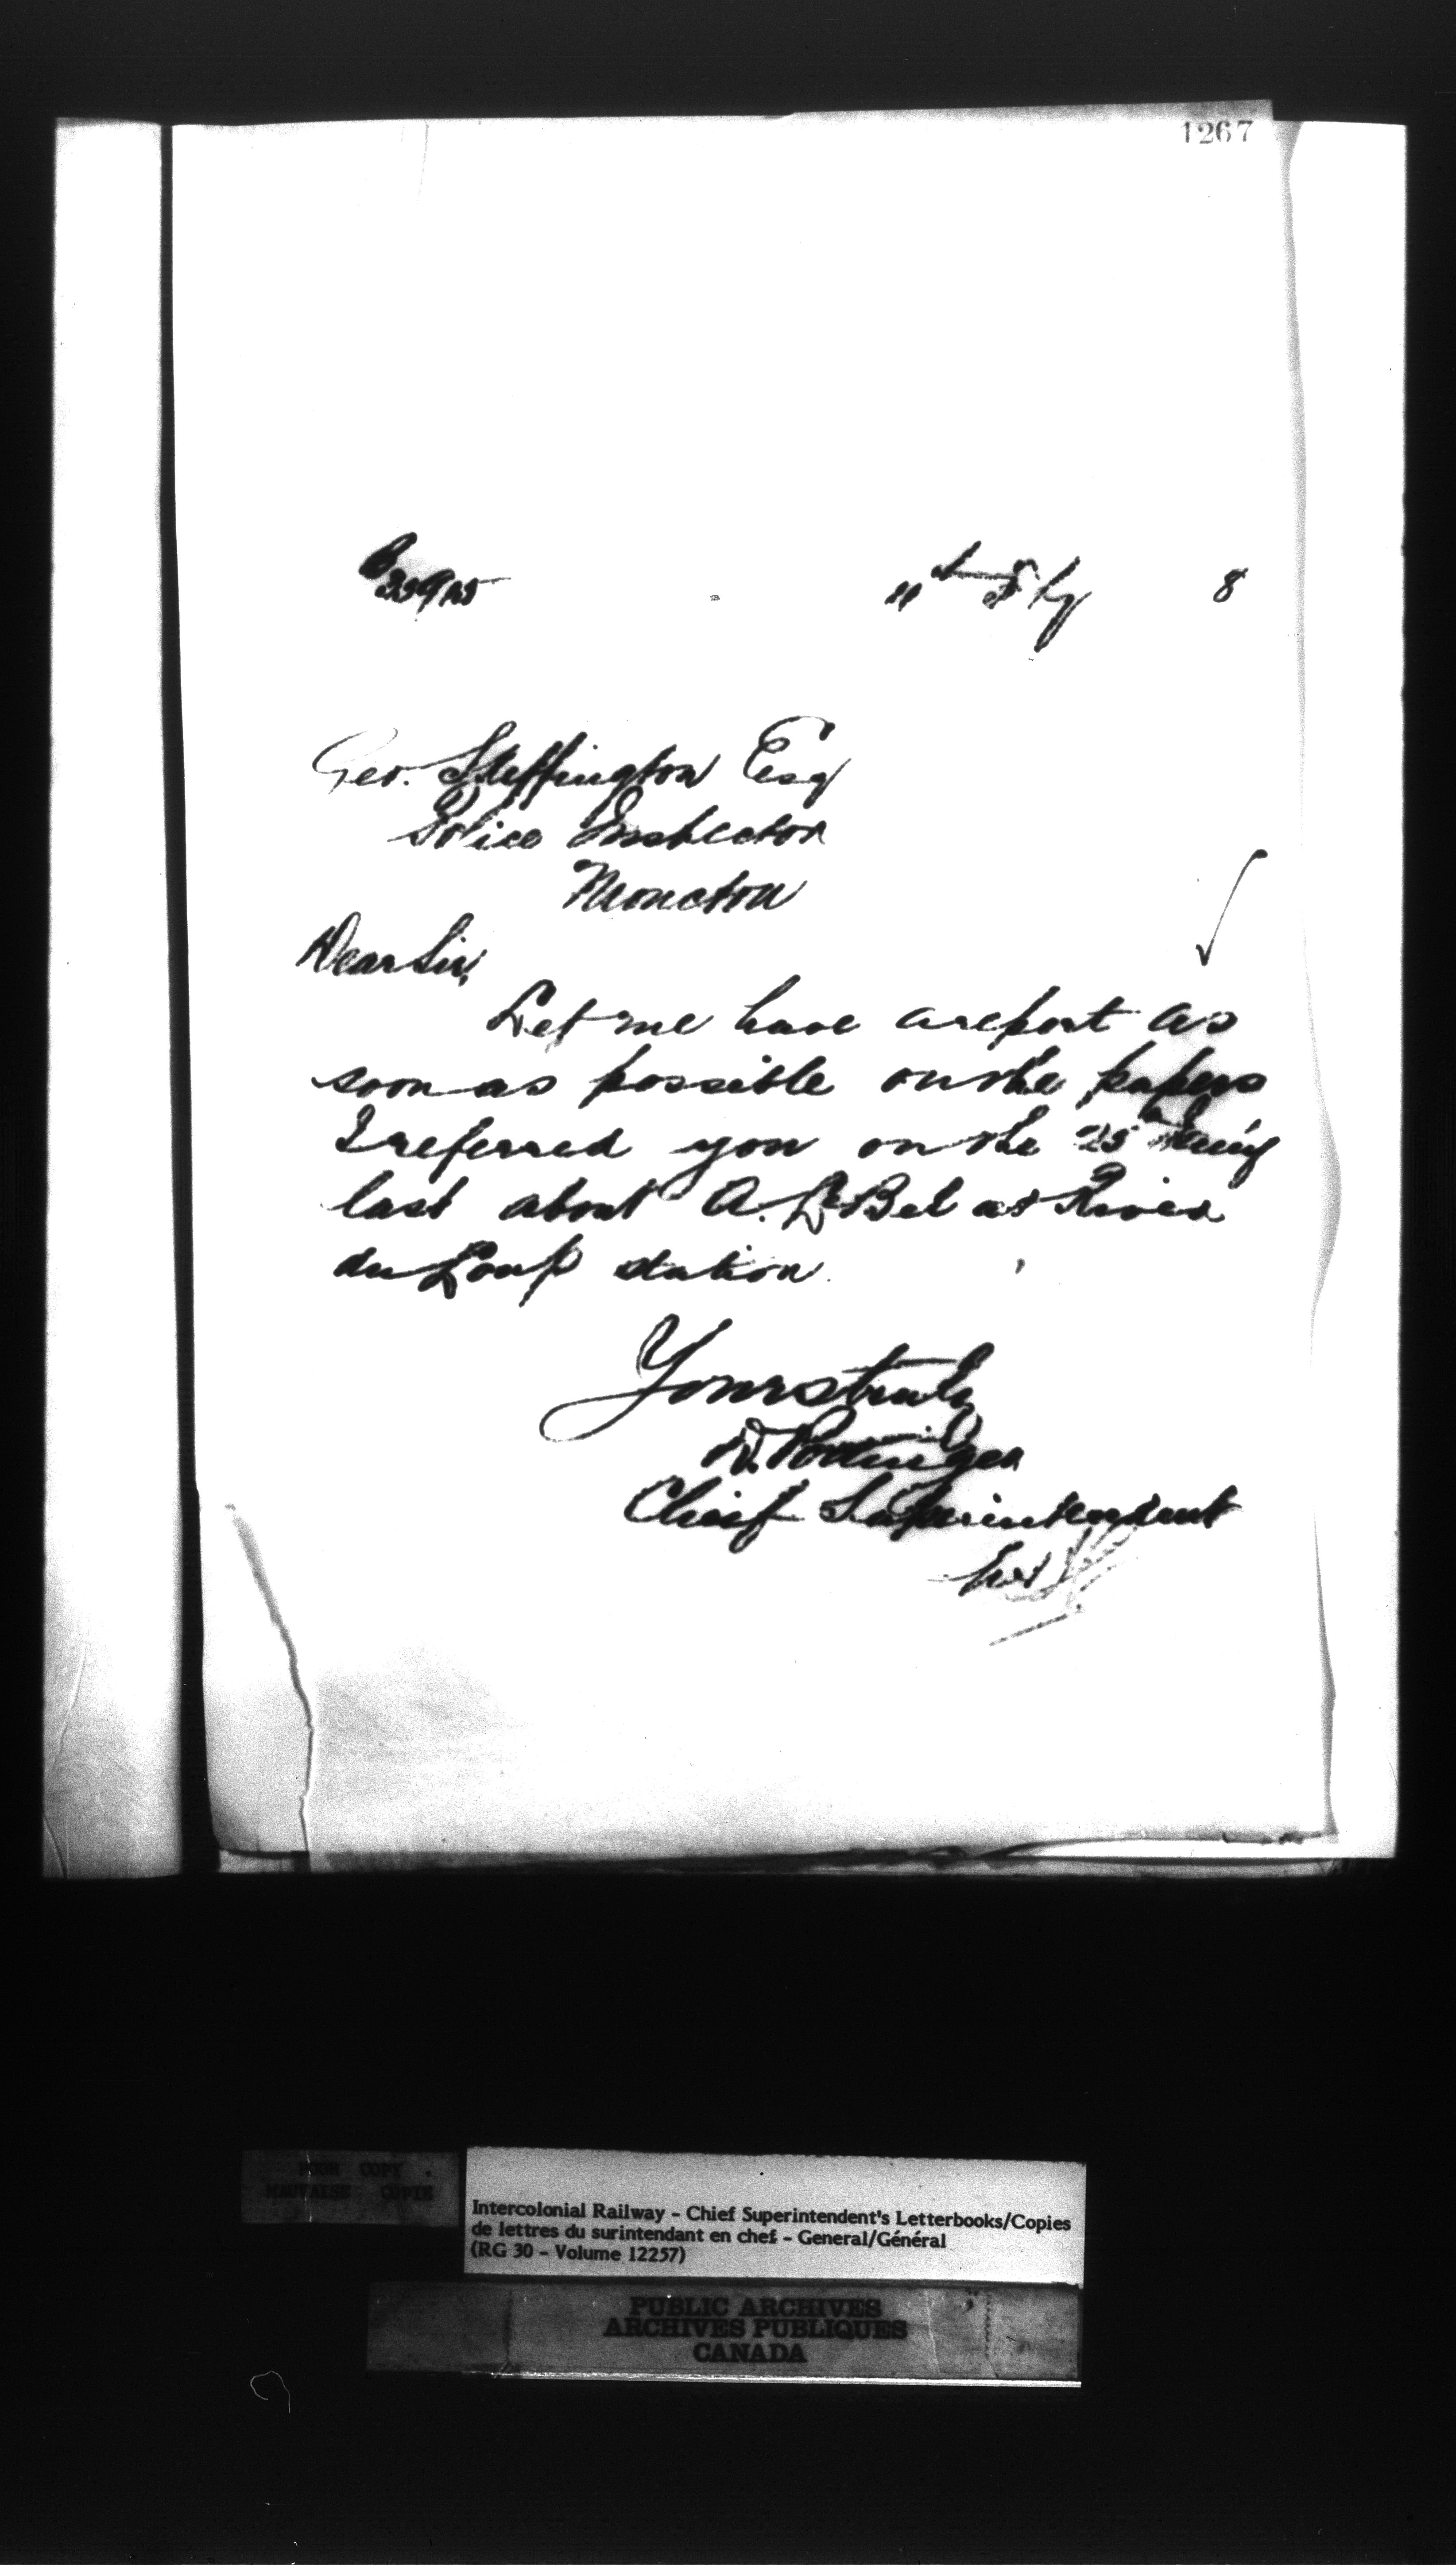 1267
11th Feby 8
Geo. Skeffington Esq
Police Inspector
Moncton
Dear Sir,
Let me have a report as
soon as possible on the papers
I referred you on the 25th
last about A. LeBel at River
du Loup station.
Yours truly
D. Pottinger
Chief Superintendent
POOR COPY
MAUVAISE COPIE
Intercolonial Railway - Chief Superintendent's Letterbooks/Copies
de lettres du surintendant en chef - General/Général
(RG 30 - Volume 12257)
PUBLIC ARCHIVES
ARCHIVES PUBLIQUES
CANADA